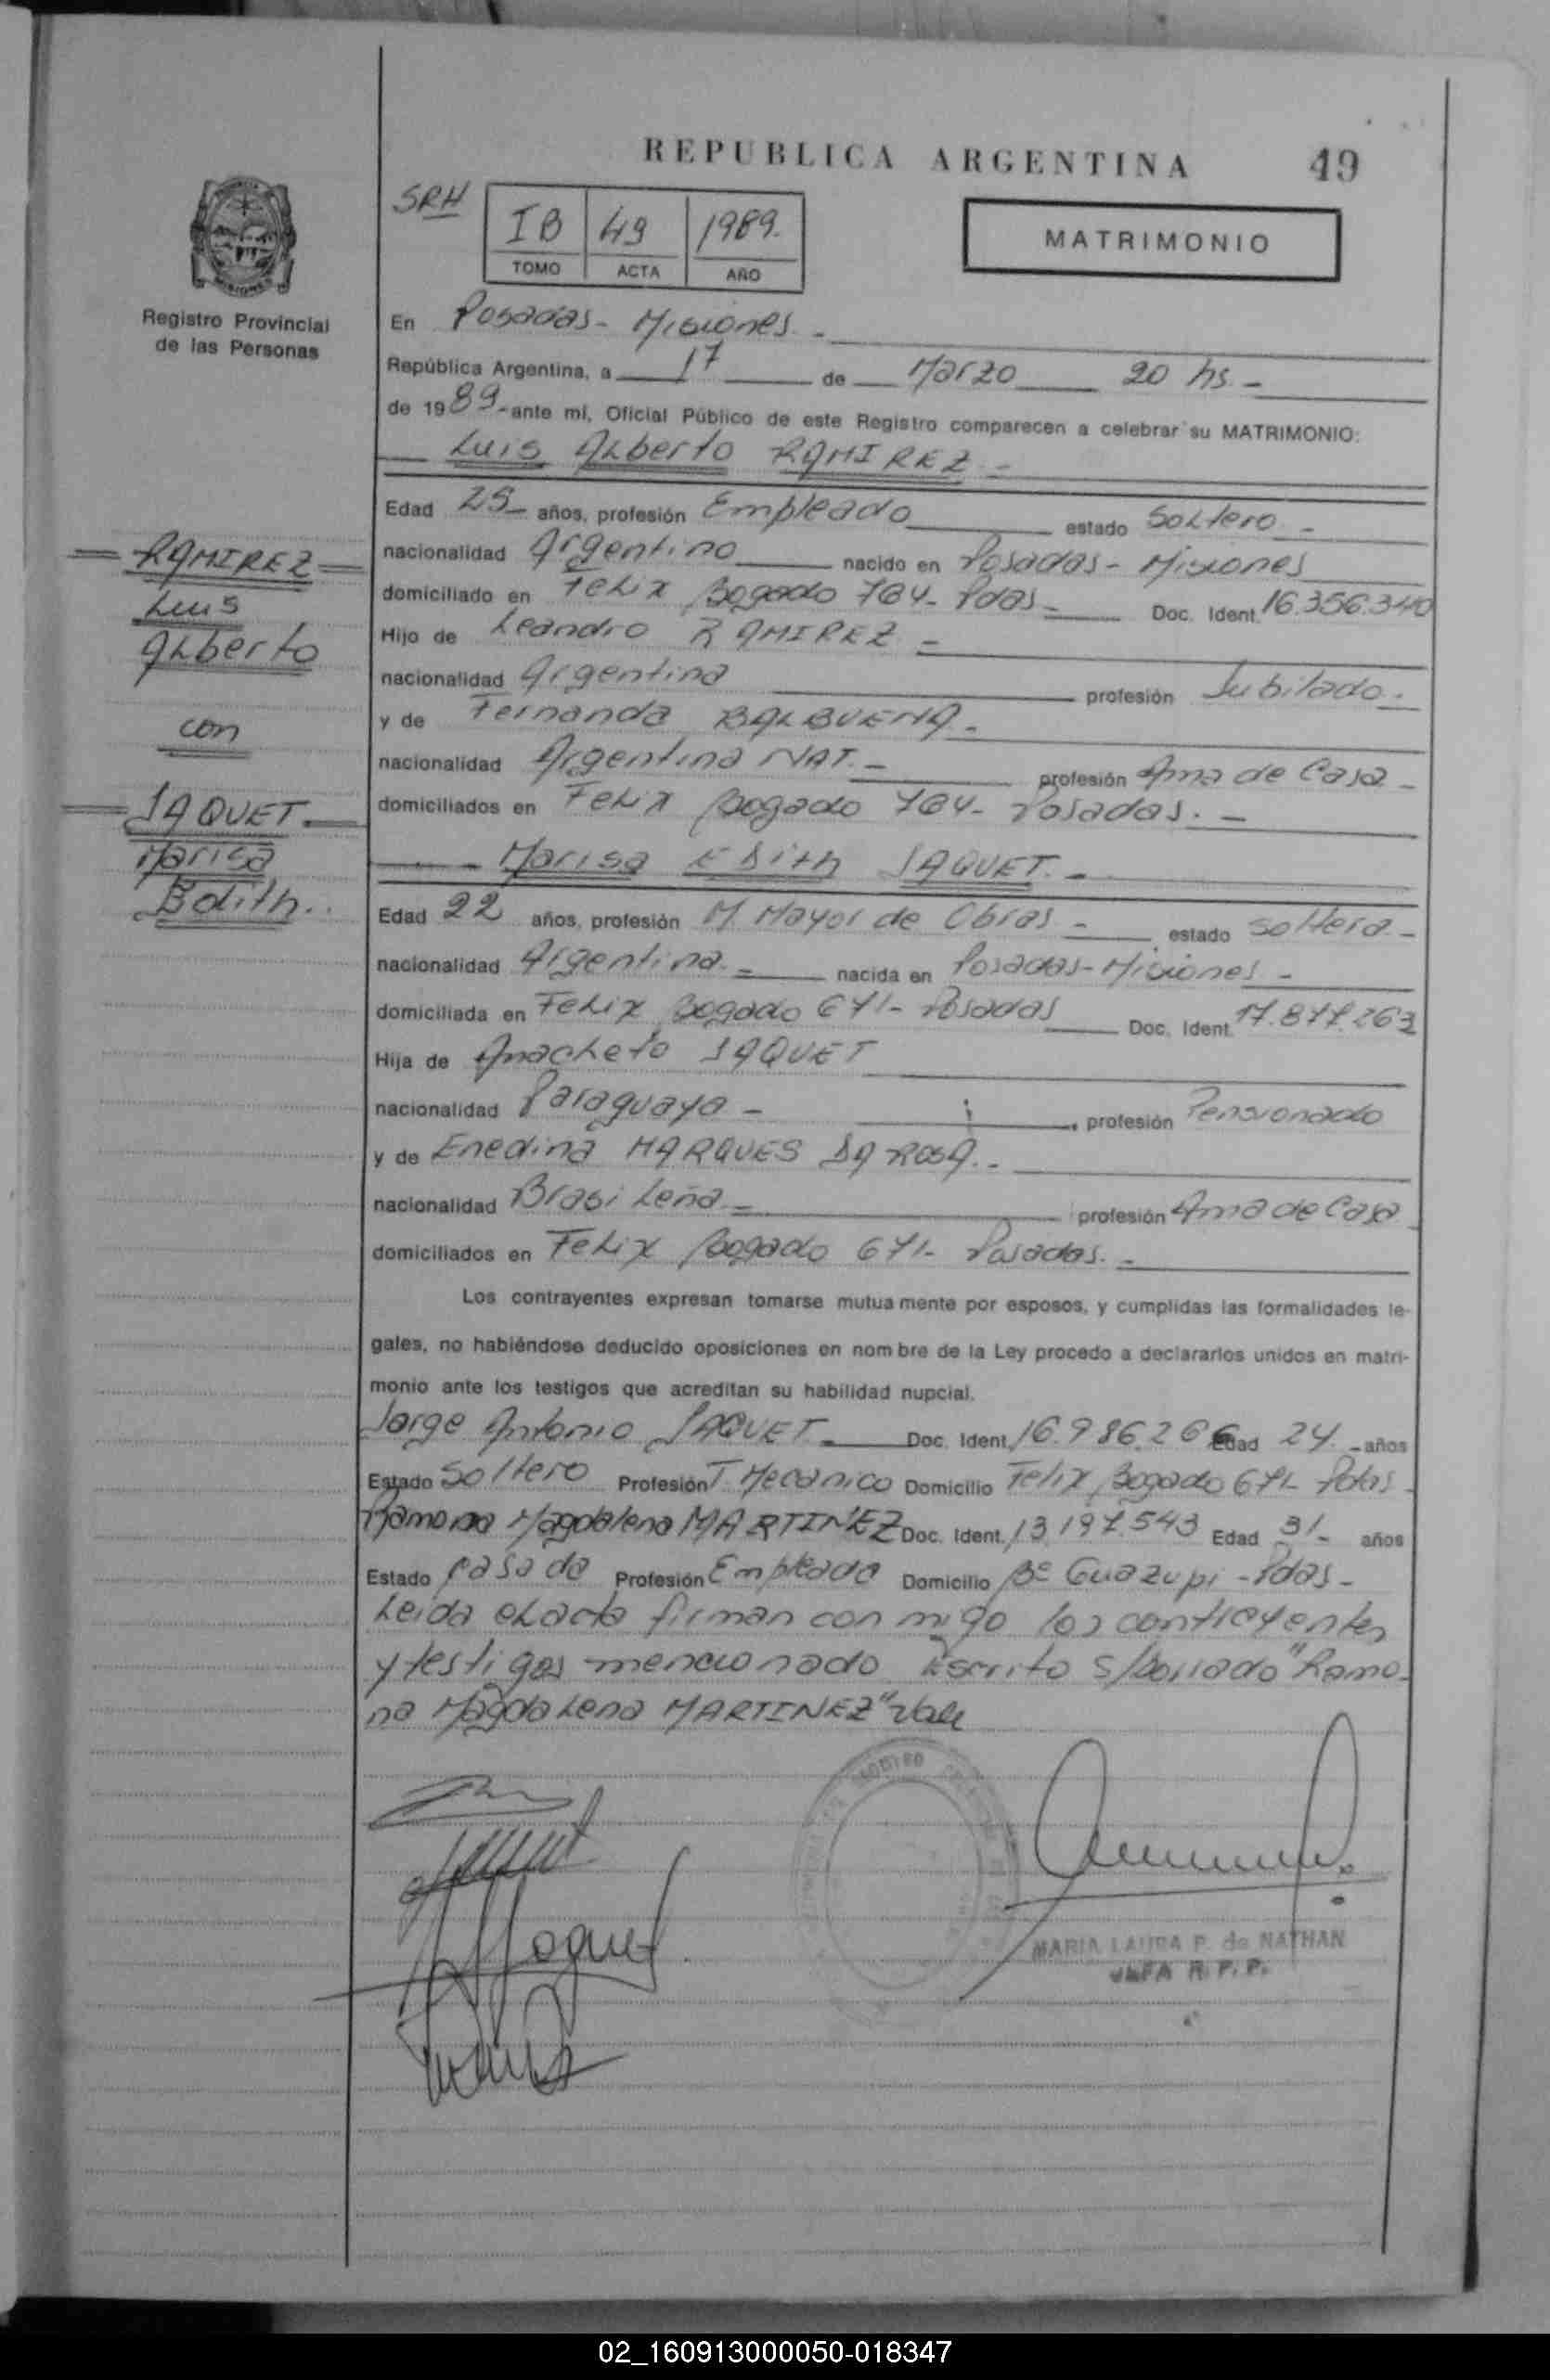 REPUBLICA ARGENTINA 49
SRH
IB 49 1989.
TOMO ACTA AÑO
MATRIMONIO
Registro Provincial
de las Personas
En Posadas - Misiones. -
República Argentina, a 17 de Marzo 20 hs. -
de 1989 - ante mí, Oficial Público de este Registro comparecen a celebrar su MATRIMONIO:
Luis Alberto RAMIREZ -
Edad 25 años, profesión Empleado estado Soltero -
nacionalidad Argentino nacido en Posadas - Misiones
domiciliado en Felix Bogado 784 - Pdas - Doc. Ident. 16.356.340
Hijo de Leandro RAMIREZ -
nacionalidad Argentina profesión Jubilado -
y de Fernanda BALBUENA -
nacionalidad Argentina NAT. - profesión Ama de Casa -
domiciliados en Felix Bogado 784 - Posadas. -
Marisa Edith JAQUET. -
Edad 22 años, profesión M. Mayor de Obras - estado soltera -
nacionalidad Argentina. - nacida en Posadas - Misiones -
domiciliada en Felix Bogado 671 - Posadas Doc. Ident. 17.877.263
Hija de Anacleto JAQUET
nacionalidad Paraguaya - profesión Pensionado
y de Enedina MARQUES DA ROSA. -
nacionalidad Brasileña - profesión Ama de Casa
domiciliados en Felix Bogado 671 - Posadas. -
Los contrayentes expresan tomarse mutuamente por esposos, y cumplidas las formalidades le-
gales, no habiéndose deducido oposiciones en nombre de la Ley procedo a declararlos unidos en matri-
monio ante los testigos que acreditan su habilidad nupcial.
Jorge Antonio JAQUET Doc. Ident. 16.986.266 Edad 24 - años
Estado Soltero Profesión T. Mecanico Domicilio Felix Bogado 671 - Pdas
Ramona Magdalena MARTINEZ Doc. Ident. 13.197.543 Edad 31 - años
Estado casada Profesión Empleada Domicilio Bº Guazupi - Pdas -
Leida el acta firman con migo los contrayentes
y testigos mencionado Escrito s/borrado "Ramo-
na Magdalena MARTINEZ" Vale
RAMIREZ
Luis
Alberto
con
JAQUET
Marisa
Edith.
MARIA LAURA P. de NATHAN
JEFA R. P. P.
02_160913000050-018347